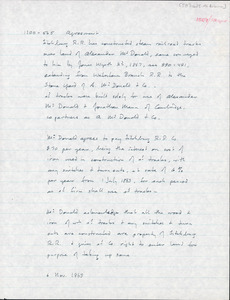 1180-468 Agreement
Fitchburg R.R. has constructed steam railroad tracks
over land of Alexander McDonald, same conveyed
to him by Jonas Wyeth 2d, 1857, and 880-481,
extending from Watertown Branch R.R. to the
Stone Yard of A. McDonald & Co.
sd tracks were built solely for use of Alexander
McDonald & Jonathan Mann of Cambridge,
co-partners as A. McDonald & Co.
McDonald agrees to pay Fitchburg R.R. Co.
$70 per year, being the interest on cost of
iron used in construction of sd tracks, with
any switches & turn outs, at rate of 6%
per year, from 1 July 1863, for such period
as sd firm shall use sd tracks.
McDonald acknowledges that all the wood &
iron of sd tracks & any switches & turn
outs are constructed are property of Fitchburg
R.R. & gives sd Co. right to enter land for
purpose of taking up same
Nov. 1863